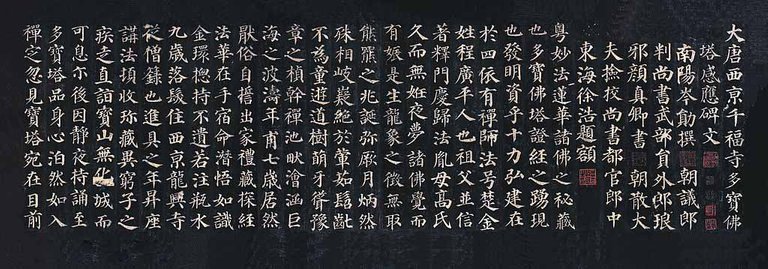 大唐西京千福寺多寶佛
塔感應碑文
南陽岑勛撰 朝議郎
判尚書武部員外郎琅
邪顏真卿書 朝散大
夫撿挍尚書都官郎中
東海徐浩題額
粵妙法蓮華諸佛之秘藏
也多寶佛塔證經之踴現
也發明資乎十力弘建在
於四依有禪師法号楚金
姓程廣平人也祖父並信
著釋門慶歸法胤母高氏
久而無姙夜夢諸佛覺而
有娠是生龍象之徵無取
熊羆之兆誕弥厥月炳然
殊相岐嶷絕於葷茹髫齔
不為童遊道樹萌牙聳豫
章之楨幹禪池畎澮涵巨
海之波濤年甫七歲居然
猒俗自誓出家禮藏探經
法華在手宿命潛悟如識
金環揔持不遺若注瓶水
九歲落髮住西京龍興寺
從僧籙也進具之年昇座
講法頓收珍藏異窮子之
疾走直詣寶山無化城而
可息尒後因靜夜持誦至
多寶塔品身心泊然如入
禪定忽見寶塔宛在目前